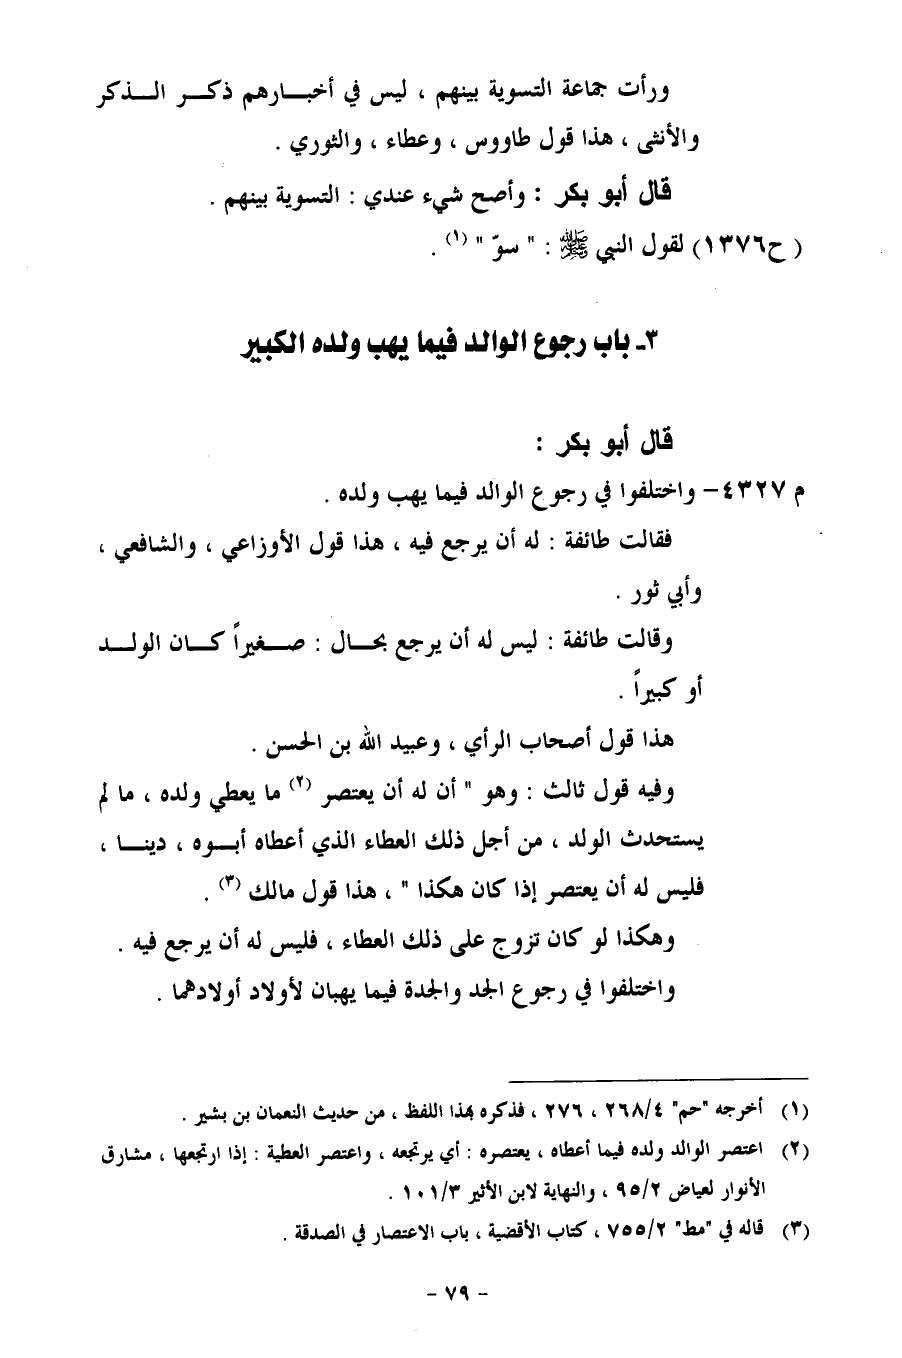 ورأت جماعة التسوية بينهم ، ليس في أخبارهم ذكر الذكر
والأنثى ، هذا قول طاووس ، وعطاء ، والثوري .
قال أبو بكر : وأصح شيء عندي : التسوية بينهم .
( ح١٣٧٦) لقول النبي ﷺ : " سوّ " (١) .
٣ـ باب رجوع الوالد فيما يهب ولده الكبير
قال أبو بكر :
م ٤٣٢٧– واختلفوا في رجوع الوالد فيما يهب ولده .
فقالت طائفة : له أن يرجع فيه ، هذا قول الأوزاعي ، والشافعي ،
وأبي ثور .
وقالت طائفة : ليس له أن يرجع بحال : صغيراً كان الولد
أو كبيراً .
هذا قول أصحاب الرأي ، وعبيد الله بن الحسن .
وفيه قول ثالث : وهو " أن له أن يعتصر (٢) ما يعطي ولده ، ما لم
يستحدث الولد ، من أجل ذلك العطاء الذي أعطاه أبوه ، دينا ،
فليس له أن يعتصر إذا كان هكذا " ، هذا قول مالك (٣) .
وهكذا لو كان تزوج على ذلك العطاء ، فليس له أن يرجع فيه .
واختلفوا في رجوع الجد والجدة فيما يهبان لأولاد أولادهما .
(١) أخرجه "حم" ٢٦٨/٤ ، ٢٧٦ ، فذكره بهذا اللفظ ، من حديث النعمان بن بشير .
(٢) اعتصر الوالد ولده فيما أعطاه ، يعتصره : أي يرتجعه ، واعتصر العطية : إذا ارتجعها ، مشارق
الأنوار لعياض ٩٥/٢ ، والنهاية لابن الأثير ١٠١/٣ .
(٣) قاله في "مط" ٧٥٥/٢ ، كتاب الأقضية ، باب الاعتصار في الصدقة .
- ٧٩ -